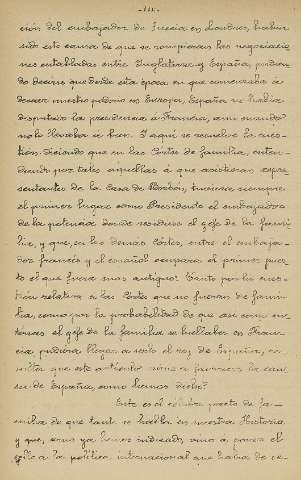 - 111. -
ción del embajador de Suecia en Londres, habien
sido esto causa de que se rompieran las negociacio
nes entabladas entre Inglaterra y España, pudien
do decirse que desde esta época en que comenzaba á
decaer nuestro poderío en Europa, España no
disputado la presidencia á Francia, aun cuando
no lo llevaba á bien. Y aquí se resuelve la cues
tión, diciendo que en las Cortes de familia, enten
diendo por tales aquellas á que asistieran repre
sentantes de la Casa de Borbón, tuviera siempre
el primer lugar como Presidente el embajador
de la potencia donde residiera el gefe de la fami
lia, y que, en las demás Cortes, entre el embaja
dor francés y el español ocupara el primer pues
to el que fuera mas antiguo. Tanto por la cues
tión relativa á las Cortes que no fueran de fami
lia, como por la probabilidad de que así como en
tonces el gefe de la familia se hallaba en Fran
cia, pudiera llegar á serlo el rey de España, re
sulta que este artículo vino á favorecer la cau
sa de España, como hemos dicho.
Este es el célebre pacto de fa
milia de que tanto se habla en nuestra Historia
y que, como ya hemos indicado, vino á poner el
sello á la política internacional que había de se-